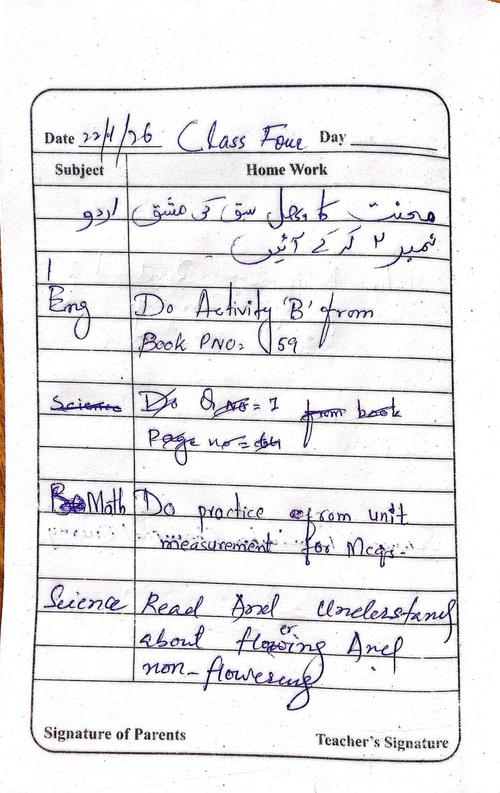 Date 22/1/26 Class Four Day
Subject Home Work
اردو محنت کا پھل سبق کی مشق
نمبر ۲ کر کے آئیں
Eng Do Activity 'B' from
Book P NO: 59
Science Do Q No = 1 from book
Page no =
Math Do practice from unit
measurement for Mcqs
Science Read And Understand
about flowering And
non-flowering
Signature of Parents Teacher's Signature